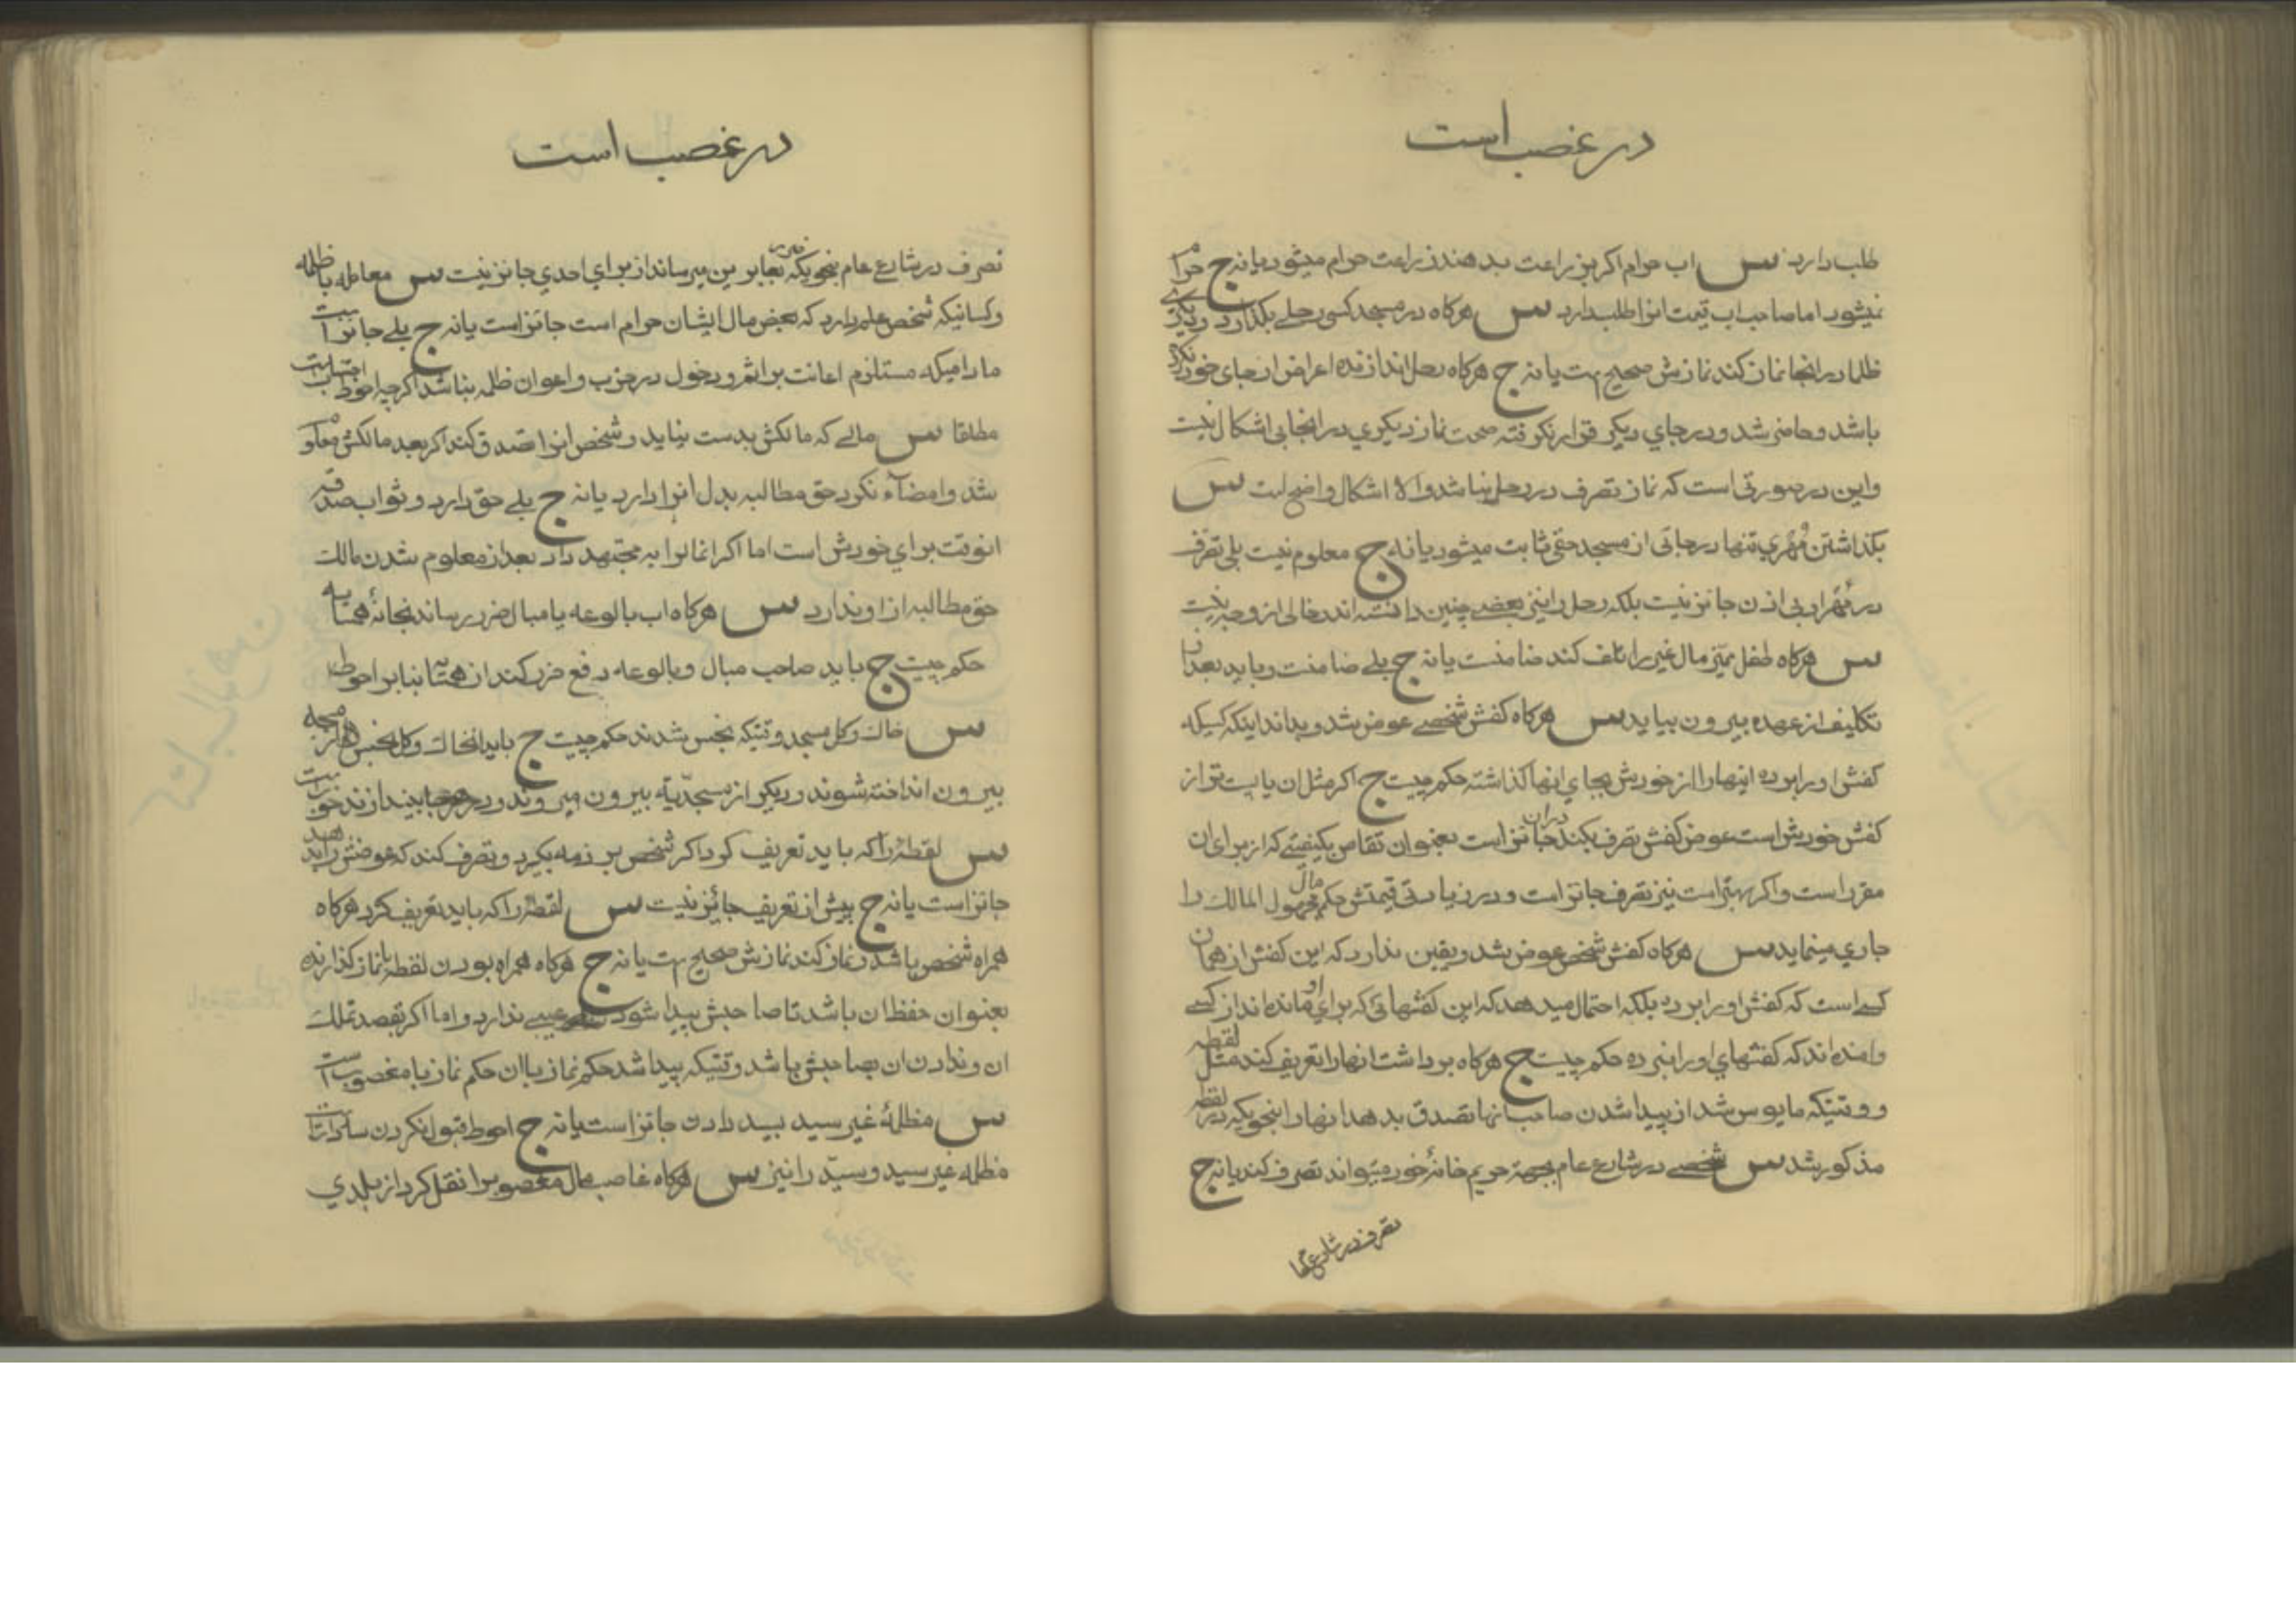 در غصب است
طلب دارد س اب حرام اکر بزراعت بدهند زراعت حرام میشود یا نه ج حرام
نمیشود اما صاحب اب قیمت انرا طلب دارد س هرکاه در مسجد کسی رحلی بکذارد دیکری
ظلما در انجا نماز کند نمازش صحیح است یا نه ج هرکاه رحل اندازنده اعراض از جای خود نکرده
باشد و حاضر شد و در جای دیکر قرار نکرفته صحت نماز دیکری در انجا بی اشکال نیست
و این در صورتی است که نماز تصرف در رحل نباشد والا اشکال واضح است س
بکذاشتن مهری تنها در جائی از مسجد حقی ثابت میشود یا نه ج معلوم نیست بلی تصرف
در مهر او بی اذن جائز نیست بلکه رحل را نیز بعضی چنین دانسته اند خالی از وجه نیست
س هرکاه طفل ممیز مال غیر را تلف کند ضامنست یا نه ج بلی ضامنست و باید بعد از
تکلیف از عهده بیرون بیاید س هرکاه کفش شخصی عوض شد و بداند اینکه کسیکه
کفش او را برده اینها را از خودش بجای انها کذاشته حکم چیست ج اکر مثل ان یا پست تر از
کفش خودش است عوض کفش تصرف بکند دران جائز است بعنوان تقاص بکیفیتی که از برای ان
مقرر است و اکر بهتر است نیز تصرف جائز است و در زیادتی قیمتش حکم مال مجهول المالک را
جاری مینماید س هرکاه کفش شخص عوض شد و یقین ندارد که این کفش از همان
کسی است که کفش او را برده بلکه احتمال میدهد که این کفشهائی که برای او مانده اند از کسی
وامنده اند که کفشهای او را نبرده حکم چیست ج هرکاه برداشت انها را تعریف کند مثل لقطه
و وقتیکه مایوس شد از پیدا شدن صاحب انها تصدق بدهد انها را بنحویکه در لقطه
مذکور شد س شخصی در شارع عام بجهة حریم خانۀ خود میتواند تصرف کند یا نه ج
تصرف در شارع عام
در غصب است
تصرف در شارع عام بنحویکه ضرر بعابرین میرساند از برای احدی جائز نیست س معامله با ظلمه
و کسانیکه شخص علم دارد که بعض مال ایشان حرام است جائز است یا نه ج بلی جائز است
مادامیکه مستلزم اعانت بر اثم و دخول در حزب و اعوان ظلمه نباشد اکرچه احوط اجتنابست
مطلقا س مالی که مالکش بدست نیاید و شخص انرا تصدق کند اکر بعد مالکش معلوم
شد و امضاء نکرد حق مطالبه بدل انرا دارد یا نه ج بلی حق دارد و ثواب صدقه
انوقت برای خودش است اما اکر انمال را به مجتهد داد بعد از معلوم شدن مالک
حق مطالبه از او ندارد س هرکاه اب بالوعه یا مبال ضرر رساند بخانۀ همسایه
حکم چیست ج باید صاحب مبال و بالوعه دفع ضرر کند از همسایه بنابر احوط
س خاک و کل مسجد وقتیکه نجس شدند حکم چیست ج باید انخاک و کل نجس از مسجد
بیرون انداخته شوند و دیکر از مسجدیّة بیرون میروند و در هرجا بیندازند خوبست
س لقطۀ را که باید تعریف کرد اکر شخص بر ذمه بکیرد و تصرف کند که عوضش را بدهد
جائز است یا نه ج پیش از تعریف جائز نیست س لقطۀ را که باید تعریف کرد هرکاه
همراه شخص باشد و نماز کند نمازش صحیح است یا نه ج هرکاه همراه بودن لقطه با نماز کذارنده
بعنوان حفظ ان باشد تا صاحبش پیدا شود عیبی ندارد و اما اکر بقصد تملک
ان و ندادن ان بصاحبش باشد وقتیکه پیدا شد حکم نماز با ان حکم نماز با مغصوب است
س مظلمۀ غیر سید بسید دادن جائز است یا نه ج احوط قبول نکردن سادات است
مظلمه غیر سید و سیّد را نیز س هرکاه غاصب مال مغصوب را نقل کرد از بلدی